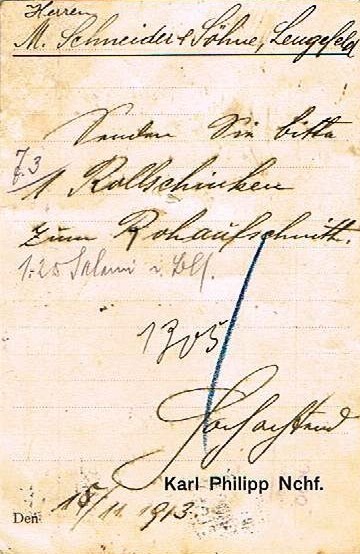 Herren
M. Schneider & Söhne, Lengefeld
Senden Sie bitte
7.3
1 Rollschinken
zum Rohaufschnitt.
1.20 Salami i. Bl.
1305
Hochachtend
Karl Philipp Nchf.
Den 15/11 1913.